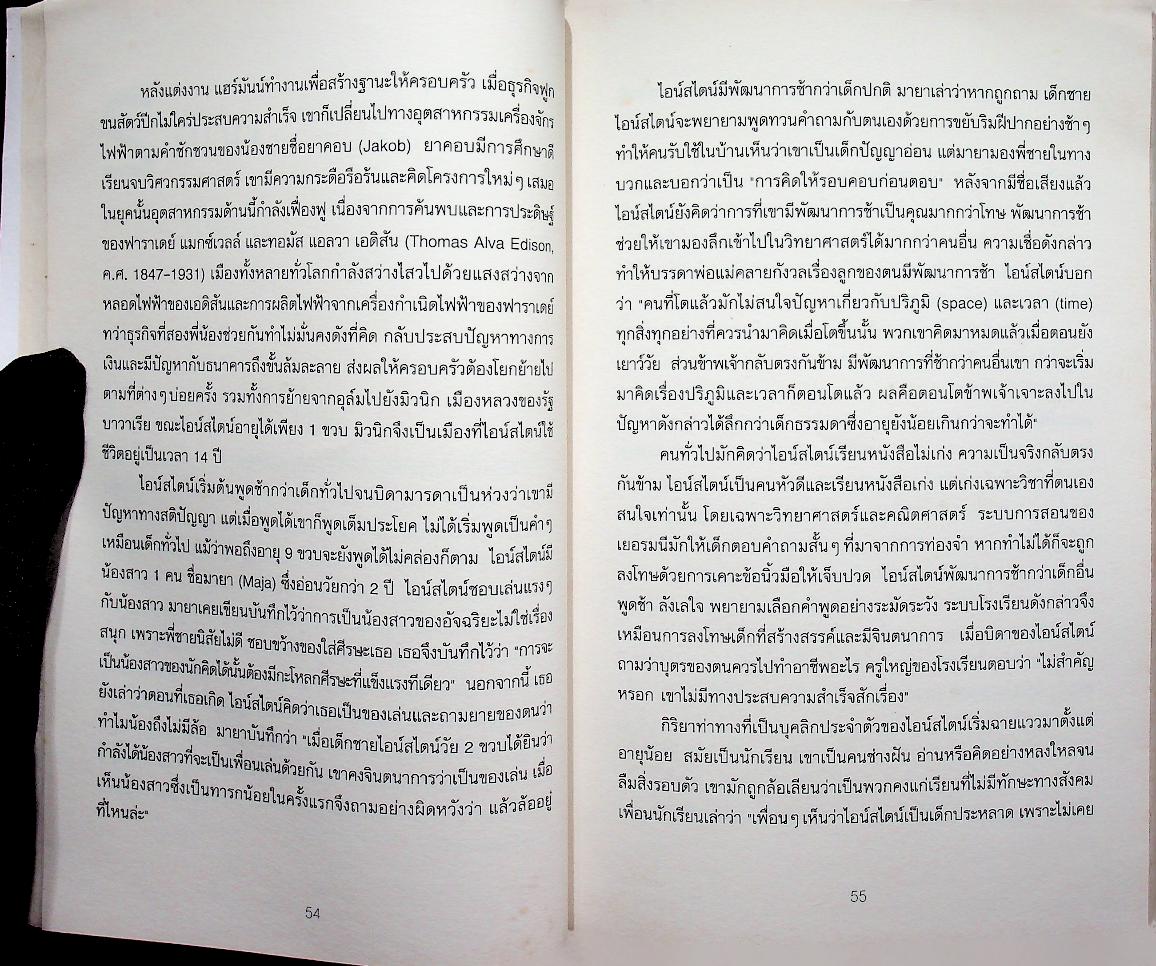 หลังแต่งงาน แฮร์มันน์ทำงานเพื่อสร้างฐานะให้ครอบครัว เมื่อธุรกิจฟูก
ขนสัตว์ปีกไม่ใคร่ประสบความสำเร็จ เขาก็เปลี่ยนไปทางอุตสาหกรรมเครื่องจักร
ไฟฟ้าตามคำชักชวนของน้องชายชื่อยาคอบ (Jakob) ยาคอบมีการศึกษาดี
เรียนจบวิศวกรรมศาสตร์ เขามีความกระตือรือร้นและคิดโครงการใหม่ๆ เสมอ
ในยุคนั้นอุตสาหกรรมด้านนี้กำลังเฟื่องฟู เนื่องจากการค้นพบและการประดิษฐ์
ของฟาราเดย์ แมกซ์เวลล์ และทอมัส แอลวา เอดิสัน (Thomas Alva Edison,
ค.ศ. 1847-1931) เมืองทั้งหลายทั่วโลกกำลังสว่างไสวไปด้วยแสงสว่างจาก
หลอดไฟฟ้าของเอดิสันและการผลิตไฟฟ้าจากเครื่องกำเนิดไฟฟ้าของฟาราเดย์
ทว่าธุรกิจที่สองพี่น้องช่วยกันทำไม่มั่นคงดังที่คิด กลับประสบปัญหาทางการ
เงินและมีปัญหากับธนาคารถึงขั้นล้มละลาย ส่งผลให้ครอบครัวต้องโยกย้ายไป
ตามที่ต่างๆ บ่อยครั้ง รวมทั้งการย้ายจากอุล์มไปยังมิวนิก เมืองหลวงของรัฐ
บาวาเรีย ขณะไอน์สไตน์อายุได้เพียง 1 ขวบ มิวนิกจึงเป็นเมืองที่ไอน์สไตน์ใช้
ชีวิตอยู่เป็นเวลา 14 ปี
ไอน์สไตน์เริ่มต้นพูดช้ากว่าเด็กทั่วไปจนบิดามารดาเป็นห่วงว่าเขามี
ปัญหาทางสติปัญญา แต่เมื่อพูดได้เขาก็พูดเต็มประโยค ไม่ได้เริ่มพูดเป็นคำๆ
เหมือนเด็กทั่วไป แม้ว่าพอถึงอายุ 9 ขวบจะยังพูดได้ไม่คล่องก็ตาม ไอน์สไตน์มี
น้องสาว 1 คน ชื่อมายา (Maja) ซึ่งอ่อนวัยกว่า 2 ปี ไอน์สไตน์ชอบเล่นแรงๆ
กับน้องสาว มายาเคยเขียนบันทึกไว้ว่าการเป็นน้องสาวของอัจฉริยะไม่ใช่เรื่อง
สนุก เพราะพี่ชายนิสัยไม่ดี ชอบขว้างของใส่ศีรษะเธอ เธอจึงบันทึกไว้ว่า "การจะ
เป็นน้องสาวของนักคิดได้นั้นต้องมีกะโหลกศีรษะที่แข็งแรงทีเดียว" นอกจากนี้ เธอ
ยังเล่าว่าตอนที่เธอเกิด ไอน์สไตน์คิดว่าเธอเป็นของเล่นและถามยายของตนว่า
ทำไมน้องถึงไม่มีล้อ มายาบันทึกว่า "เมื่อเด็กชายไอน์สไตน์วัย 2 ขวบได้ยินว่า
กำลังได้น้องสาวที่จะเป็นเพื่อนเล่นด้วยกัน เขาคงจินตนาการว่าเป็นของเล่น เมื่อ
เห็นน้องสาวซึ่งเป็นทารกน้อยในครั้งแรกจึงถามอย่างผิดหวังว่า แล้วล้ออยู่
ที่ไหนล่ะ"
54
ไอน์สไตน์มีพัฒนาการช้ากว่าเด็กปกติ มายาเล่าว่าหากถูกถาม เด็กชาย
ไอน์สไตน์จะพยายามพูดทวนคำถามกับตนเองด้วยการขยับริมฝีปากอย่างช้าๆ
ทำให้คนรับใช้ในบ้านเห็นว่าเขาเป็นเด็กปัญญาอ่อน แต่มายามองพี่ชายในทาง
บวกและบอกว่าเป็น "การคิดให้รอบคอบก่อนตอบ" หลังจากมีชื่อเสียงแล้ว
ไอน์สไตน์ยังคิดว่าการที่เขามีพัฒนาการช้าเป็นคุณมากกว่าโทษ พัฒนาการช้า
ช่วยให้เขามองลึกเข้าไปในวิทยาศาสตร์ได้มากกว่าคนอื่น ความเชื่อดังกล่าว
ทำให้บรรดาพ่อแม่คลายกังวลเรื่องลูกของตนมีพัฒนาการช้า ไอน์สไตน์บอก
ว่า "คนที่โตแล้วมักไม่สนใจปัญหาเกี่ยวกับปริภูมิ (space) และเวลา (time)
ทุกสิ่งทุกอย่างที่ควรนำมาคิดเมื่อโตขึ้นนั้น พวกเขาคิดมาหมดแล้วเมื่อตอนยัง
เยาว์วัย ส่วนข้าพเจ้ากลับตรงกันข้าม มีพัฒนาการที่ช้ากว่าคนอื่นเขา กว่าจะเริ่ม
มาคิดเรื่องปริภูมิและเวลาก็ตอนโตแล้ว ผลคือตอนโตข้าพเจ้าเจาะลงไปใน
ปัญหาดังกล่าวได้ลึกกว่าเด็กธรรมดาซึ่งอายุยังน้อยเกินกว่าจะทำได้"
คนทั่วไปมักคิดว่าไอน์สไตน์เรียนหนังสือไม่เก่ง ความเป็นจริงกลับตรง
กันข้าม ไอน์สไตน์เป็นคนหัวดีและเรียนหนังสือเก่ง แต่เก่งเฉพาะวิชาที่ตนเอง
สนใจเท่านั้น โดยเฉพาะวิทยาศาสตร์และคณิตศาสตร์ ระบบการสอนของ
เยอรมนีมักให้เด็กตอบคำถามสั้นๆ ที่มาจากการท่องจำ หากทำไม่ได้ก็จะถูก
ลงโทษด้วยการเคาะข้อนิ้วมือให้เจ็บปวด ไอน์สไตน์พัฒนาการช้ากว่าเด็กอื่น
พูดช้า ลังเลใจ พยายามเลือกคำพูดอย่างระมัดระวัง ระบบโรงเรียนดังกล่าวจึง
เหมือนการลงโทษเด็กที่สร้างสรรค์และมีจินตนาการ เมื่อบิดาของไอน์สไตน์
ถามว่าบุตรของตนควรไปทำอาชีพอะไร ครูใหญ่ของโรงเรียนตอบว่า "ไม่สำคัญ
หรอก เขาไม่มีทางประสบความสำเร็จสักเรื่อง"
กิริยาท่าทางที่เป็นบุคลิกประจำตัวของไอน์สไตน์เริ่มฉายแววมาตั้งแต่
อายุน้อย สมัยเป็นนักเรียน เขาเป็นคนช่างฝัน อ่านหรือคิดอย่างหลงใหลจน
ลืมสิ่งรอบตัว เขามักถูกล้อเลียนว่าเป็นพวกคงแก่เรียนที่ไม่มีทักษะทางสังคม
เพื่อนนักเรียนเล่าว่า "เพื่อนๆ เห็นว่าไอน์สไตน์เป็นเด็กประหลาด เพราะไม่เคย
55